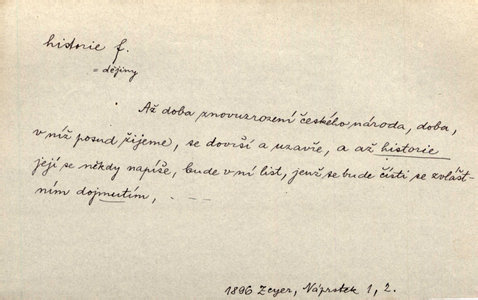 historie f.
= dějiny
Až doba znovuzrození českého národa, doba,
v níž posud žijeme, se dovrší a uzavře, a až historie
její se někdy napíše, bude v ní list, jenž se bude čísti se zvlášt-
ním dojmutím, - - -
1896 Zeyer, Náprstek 1, 2.